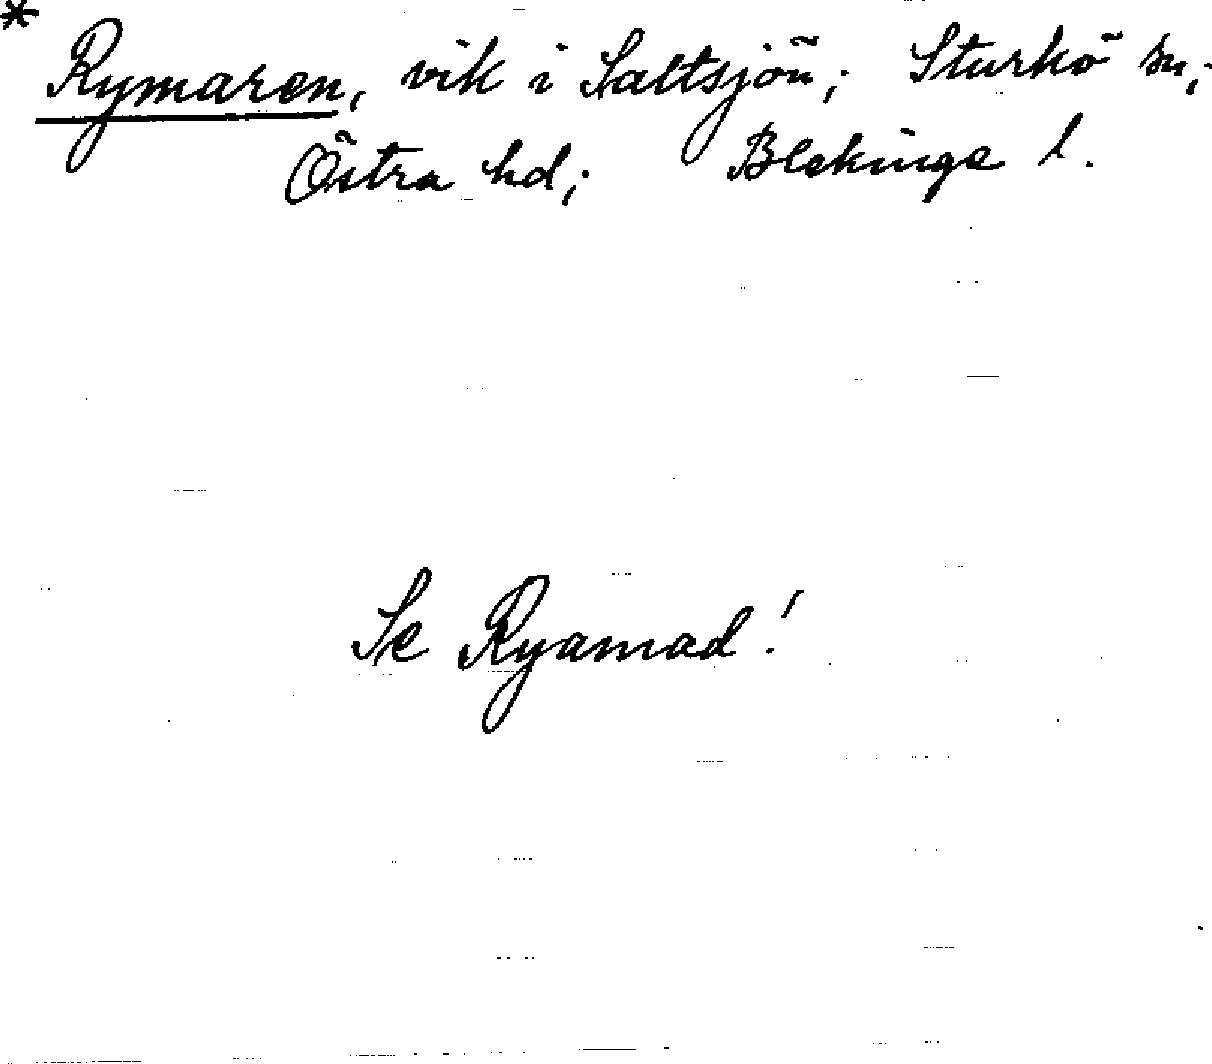 * Rymaren, vik i Saltsjön; Sturkö sn;
Östra hd; Blekinge l.
Se Ryamad!